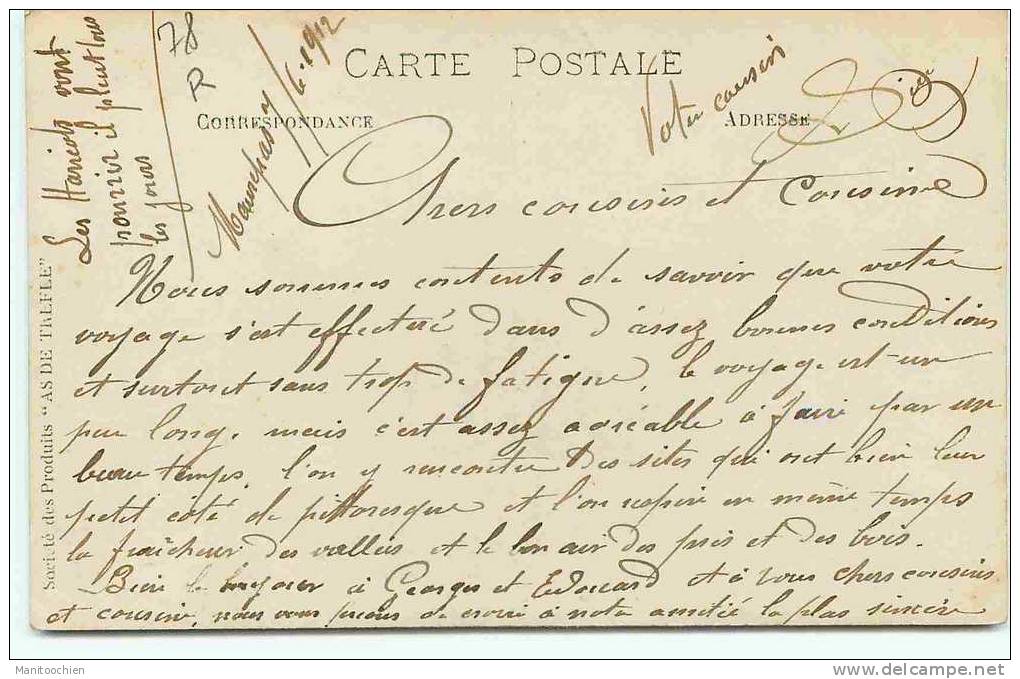 CARTE POSTALE
CORRESPONDANCE
ADRESSE
78
R
6-1912
Chers cousins et Cousine
Nous sommes contents de savoir que votre
voyage s'est effectué dans d'assez bonnes conditions
et surtout sans trop de fatigue, le voyage est un
peu long, mais c'est assez agréable à faire par un
beau temps, l'on y rencontre des sites qui ont bien leur
petit côté de pittoresque et l'on respire en même temps
la fraîcheur des vallées et le bon air des prés et des bois.
Bien le bonjour à Georges et Edouard et à vous chers cousins
et cousine, nous vous prions de croire à notre amitié la plus sincère
Votre cousin
Les Haricots vont
pourrir il pleut tous
les jours
Société des Produits "AS DE TREFLE"
Manitoochien
www.delcampe.net